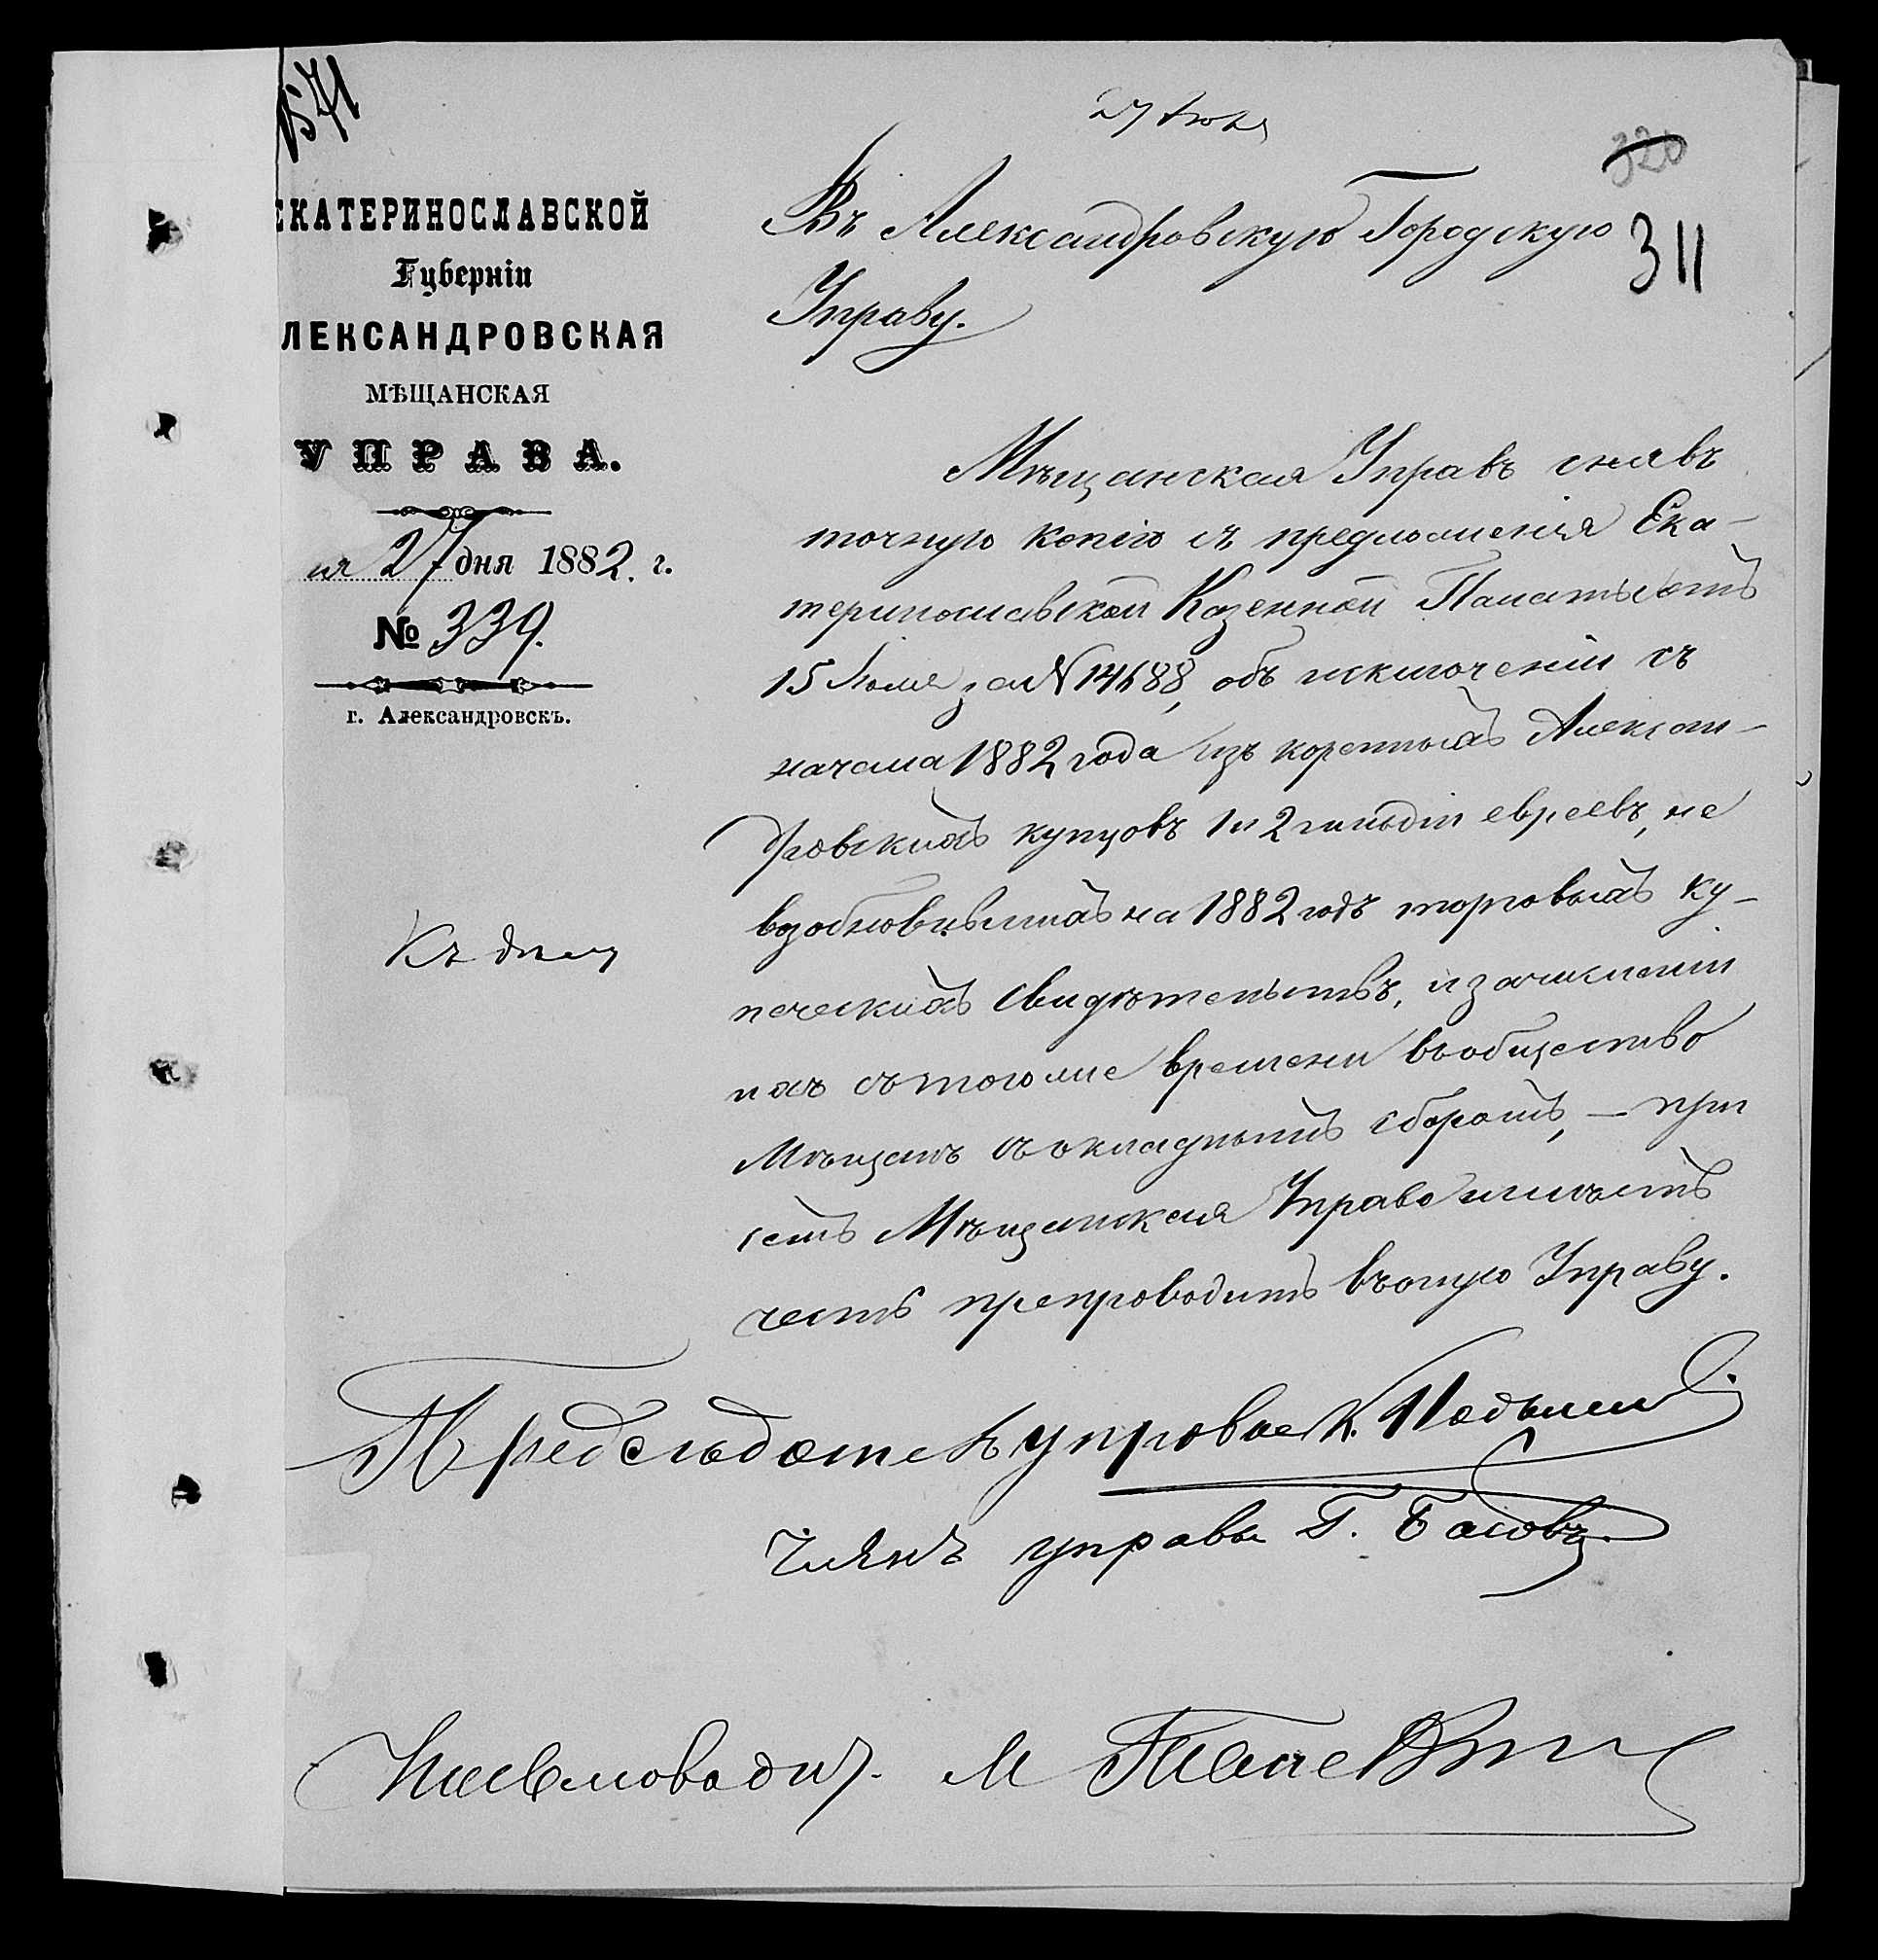 571
27 Июля
320
311
ЕКАТЕРИНОСЛАВСКОЙ
Губерніи
ЛЕКСАНДРОВСКАЯ
МѢЩАНСКАЯ
УПРАВА.
ля 27 дня 1882. г.
№ 339.
г. Александровскъ.
Къ дѣлу
Въ Александровскую Городскую
Управу.
Мѣщанская Управа снявъ
точную копію съ предложенія Ека-
теринославской Казенной Палаты отъ
15 Іюля за № 14688, объ исключеніи съ
начала 1882 года изъ коренныхъ Алексан-
дровскихъ купцовъ 1 и 2 гильдіи евреевъ, не
возобновившихъ на 1882 годъ торговыхъ ку-
печескихъ свидѣтельствъ, и зачисленіи
ихъ съ того же времени въ общество
Мѣщанъ съ окладнымъ сборомъ, — при
семъ Мѣщанская Управа имѣетъ
честь препроводить въ оную Управу.
Председатель управы К.
Членъ управы Г. Басовъ
Письмоводит. М